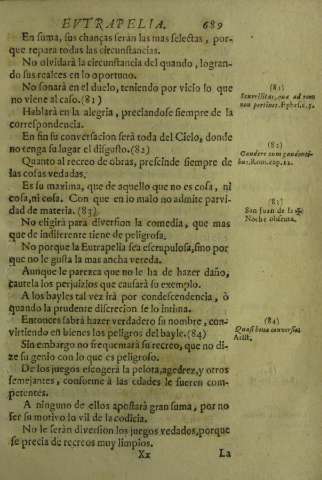 EVTRAPELIA. 689
En suma, sus chanças seràn las mas selectas, por-
que repara todas las circunstancias.
No olvidarà la circunstancia del quando, logran-
do sus realces en lo oportuno.
No sonarà en el duelo, teniendo por vicio lo que
no viene al caso. (81)
(81)
Scurrilitas, quæ ad rem
non pertinet. Ephes. c. 5.
Hablarà en la alegria, preciandose siempre de la
correspondencia.
En fin su conversacion serà toda del Cielo, donde
no tenga su lugar el disgusto. (82)
(82)
Gaudere cum gaudenti-
bus. Rom. cap. 12.
Quanto al recreo de obras, prescinde siempre de
las cosas vedadas.
Es su maxima, que de aquello que no es cosa, ni
cosa, ni cosa. Con que en lo malo no admite parvi-
dad de materia. (83)
(83)
San Juan de la
Noche obscura.
No eligirà para diversion la comedia, que mas
que de indiferente tiene de peligrosa.
No porque la Eutrapelia sea escrupulosa, sino por
que no le gusta la mas ancha vereda.
Aunque le parezca que no le ha de hazer daño,
cautela los perjuizios que causarà su exemplo.
A los bayles tal vez irà por condescendencia, ò
quando la prudente discrecion se lo intima.
Entonces sabrà hazer verdadero su nombre, con-
virtiendo en bienes los peligros del bayle. (84)
(84)
Quasi bona conversio.
Arist.
Sin embargo no frequentarà su recreo, que no di-
ze su genio con lo que es peligroso.
De los juegos escogerà la pelota, agedrez, y otros
semejantes, conforme à las edades le fueren com-
petentes.
A ninguno de ellos apostarà gran suma, por no
ser su motivo lo vil de la codicia.
No le seràn diversion los juegos vedados, porque
se precia de recreos muy limpios.
Xx La